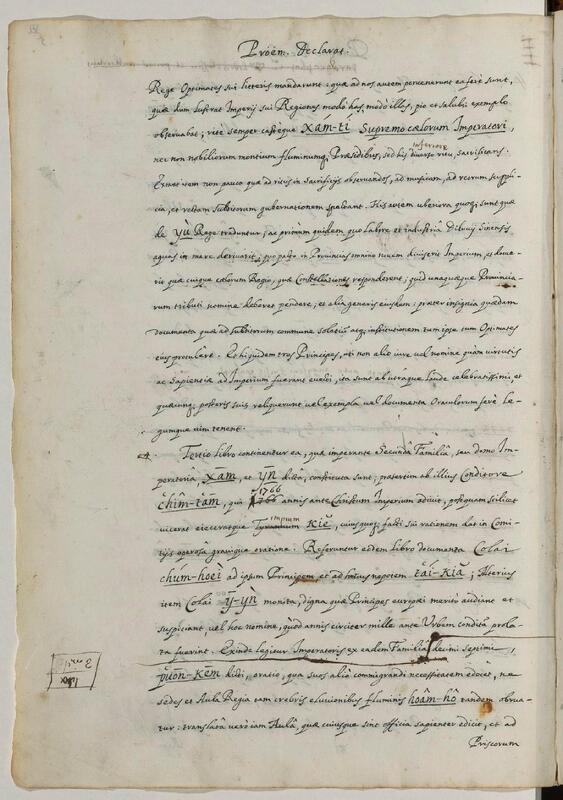 Proëm. Declarat.
Rege Optimates sui litteris mandarunt: quæ ad nos autem pervenerunt ea ferè sunt,
quæ dum lustrat Imperij sui Regiones modò has, modò illas, pio et salubri exemplo
observabat; ritè semper castèque Xám-tí Supremo cælorum Imperatori,
nec non nobiliorum montium fluminumq; Præsidibus, sed his diverso ritu, sacrificans.
inferiore
Extant item non pauca quæ ad ritus in Sacrificijs observandos, ad musicam, ad reorum suppli-
cia, et rectam subditorum gubernationem spectant. His autem uberiora quoq; sunt quæ
de Yù Rege traduntur; ac primùm quidem quo labore et industriâ Diluvij Sinensis
aquas in mare derivarit; quo pacto in Provincias omnino novem diviserit Imperium, et docue-
rit quæ cuique cælorum Regio, quæ Constellationes responderent; quid unaquæque Provincia-
rum tributi nomine deberet pendere; et alia generis eiusdem: præter insignia quædam
documenta quæ ad subditorum commune solatium atq; institutionem tum ipse tum Optimates
eius protulêre. Et hi quidem tres Principes, uti non alio iure vel nomine quàm virtutis
ac Sapientiæ ad Imperium fuerant evecti, ita sunt ab utrâque laude celebratissimi, et
quæcunq; posteris suis reliquerunt vel exempla vel documenta Oraculorum ferè Le-
gumque vim tenent.
Tertio libro continentur ea, quæ imperante Secundâ Familiâ, seu domo Im-
peratoriâ Xām, et ȳn dictâ, constituta sunt; præsertim ab illius Conditore
chîm-tām, qui 1766 annis ante Christum Imperium adivit, postquam scilicet
1766
vicerat eieceratque Tyrannum Kiĕ, cuiusquoq; facti sui rationem dat in Comi-
impium
tijs operosâ gravique oratione: Referuntur eodem libro documenta Colai
chúm-hoèi ad ipsum Principem et ad huius nepotem tái-kiă; Alterius
item Colai Ȳ-yn monita, digna quæ Principes europæi meritò audiant et
suspiciant, vel hoc nomine, quòd annis circiter mille ante Urbem conditam prola-
ta fuerint. Exinde legitur Imperatoris ex eadem Familiâ decimi septimi
puōn-kēm dicti, oratio, qua suos alio commigrandi necessitatem edocet, ne
sedes et Aula Regia tam crebris eluvionibus fluminis hoâm-hô tandem obrua-
tur: translatâ verò iam Aulâ, quæ cuiusque sint officia sapienter edicit, et ad
Priscorum